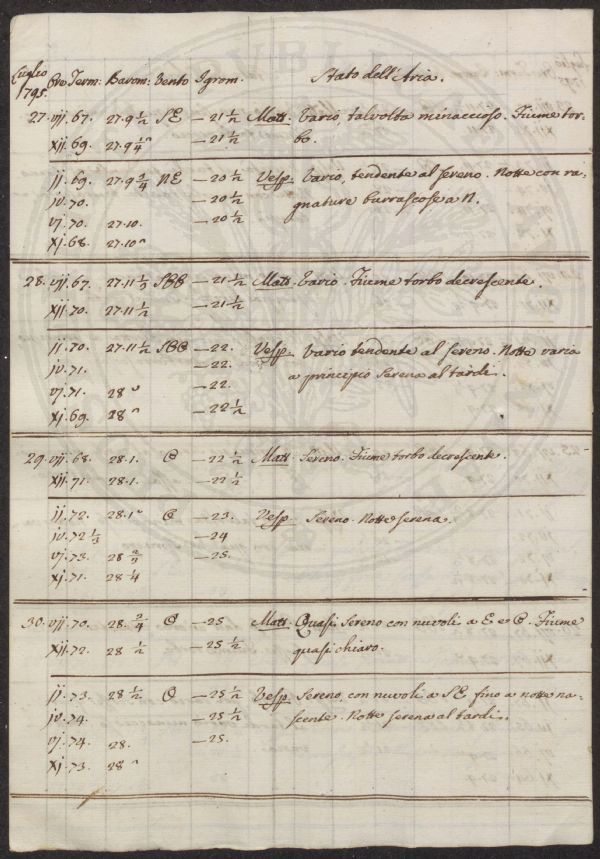 Luglio
1795. Ore Term: Barom: Vento Igrom. Stato dell'Aria.
27. vij. 67. 27.9 1/2 SE — 21 1/2 Matt. Vario, talvolta minaccioso. Fiume tor-
xij. 69. 27.9 1/4 — 21 1/2 bo.
ij. 69. 27.9 3/4 NE — 20 1/2 Vesp. Vario, tendente al sereno. Notte con ra-
iv. 70. — 20 1/2 gnature burrascose a N.
vj. 70. 27.10. — 20 1/2
xj. 68. 27.10
28. vij. 67. 27.11 — 21 1/2 Matt. Vario. Fiume torbo decrescente.
xij. 70. 27.11 1/2 — 21 1/2
ij. 70. 27.11 1/2 — 22. Vesp. Vario tendente al sereno. Notte varia
iv. 71. — 22. a principio Serena al tardi.
vj. 71. 28 — 22.
xj. 69. 28 — 22 1/2
29. vij. 68. 28.1. O — 22 1/2 Matt. Sereno. Fiume torbo decrescente.
xij. 71. 28.1. — 22 1/2
ij. 72. 28.1 O — 23. Vesp. Sereno. Notte serena.
iv. 72 1/3 — 24
vj. 73. 28 — 25.
xj. 71. 28 1/4
30. vij. 70. 28. 3/4 O — 25 Matt. Quasi Sereno con nuvoli a E e O. Fiume
xij. 72. 28 1/2 — 25 1/2 quasi chiaro.
ij. 73. 28 1/2 O — 25 1/2 Vesp. Sereno, con nuvoli a SE fino a notte na-
iv. 74. — 25 1/2 scente. Notte serena al tardi.
vj. 74. 28. — 25.
xj. 73. 28